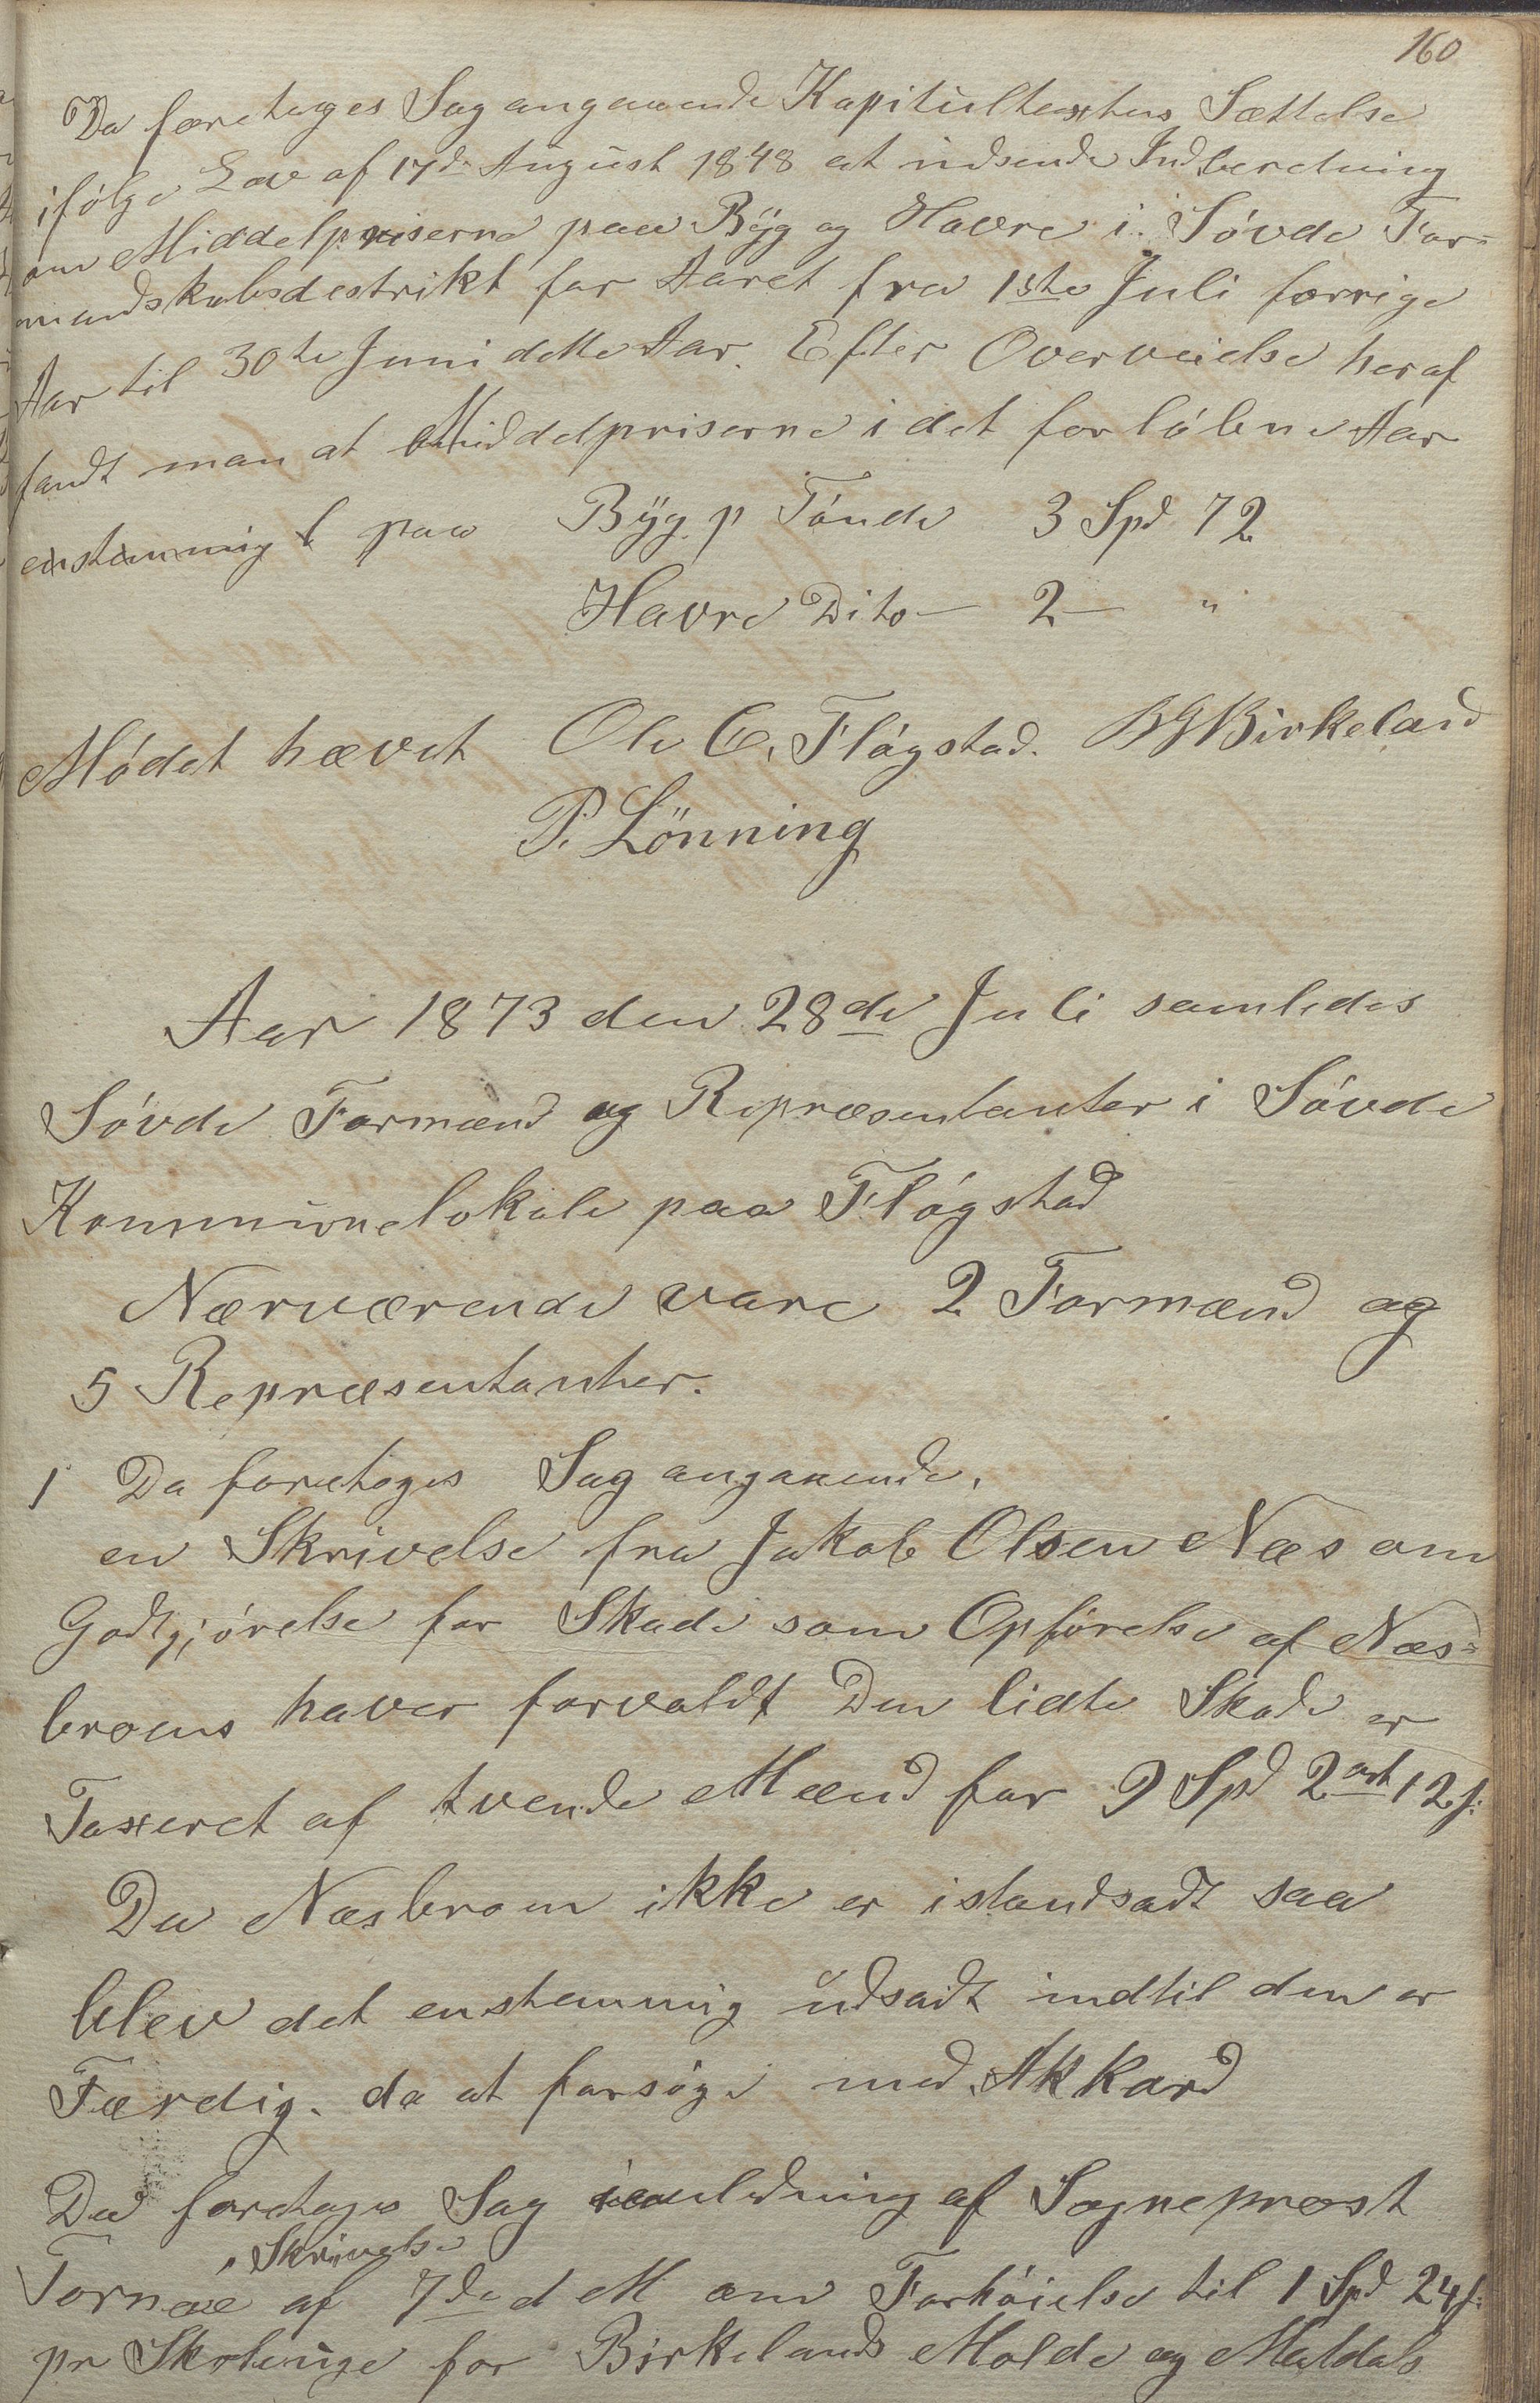 160
Da foretoges Sag angaaende Kapitultaxtens Sættelse
ifølge Lov af 17de August 1848 at udsende Indberetning
om Middelpriserne paa Byg og Havre i Søvde For-
mandskabsdestrikt for Aaret fra 1ste Juli forrige
Aar til 30te Juni dette Aar. Efter Overveielse heraf
fandt man at Middelpriserne i det forløbne Aar
enstemmig paa Byg p Tønde 3 Spd 72
Havre Dito — 2 — "
Mødet hævet Ole C. Fløgstad. BGBirkeland
P. Lönning
Aar 1873 den 28de Juli samledes
Søvde Formænd og Repræsentanter i Søvde
Kommunelokale paa Fløgstad
Nærværende vare 2 Formænd og
5 Repræsentanter.
1 Da foretoges Sag angaaende.
en Skrivelse fra Jakob Olsen Næs om
Godtgjørelse for Skade som Opførelse af Næs-
broens haver forvoldt Den lidte Skade er
Taxeret af tvende Mænd for 9 Spd 2 ort 12 s:
Da Næsbroen ikke er istandsadt saa
blev det enstemmig udsadt indtil den er
Færdig. da at forsøge med Akkard
Da foretoges Sag iauledning af Sogneprest
Skrivelse
Tornæe af 7de d M om Forhøielse til 1 Spd 24 s:
pr Skoleuge for Birkelands Molde og Maldals